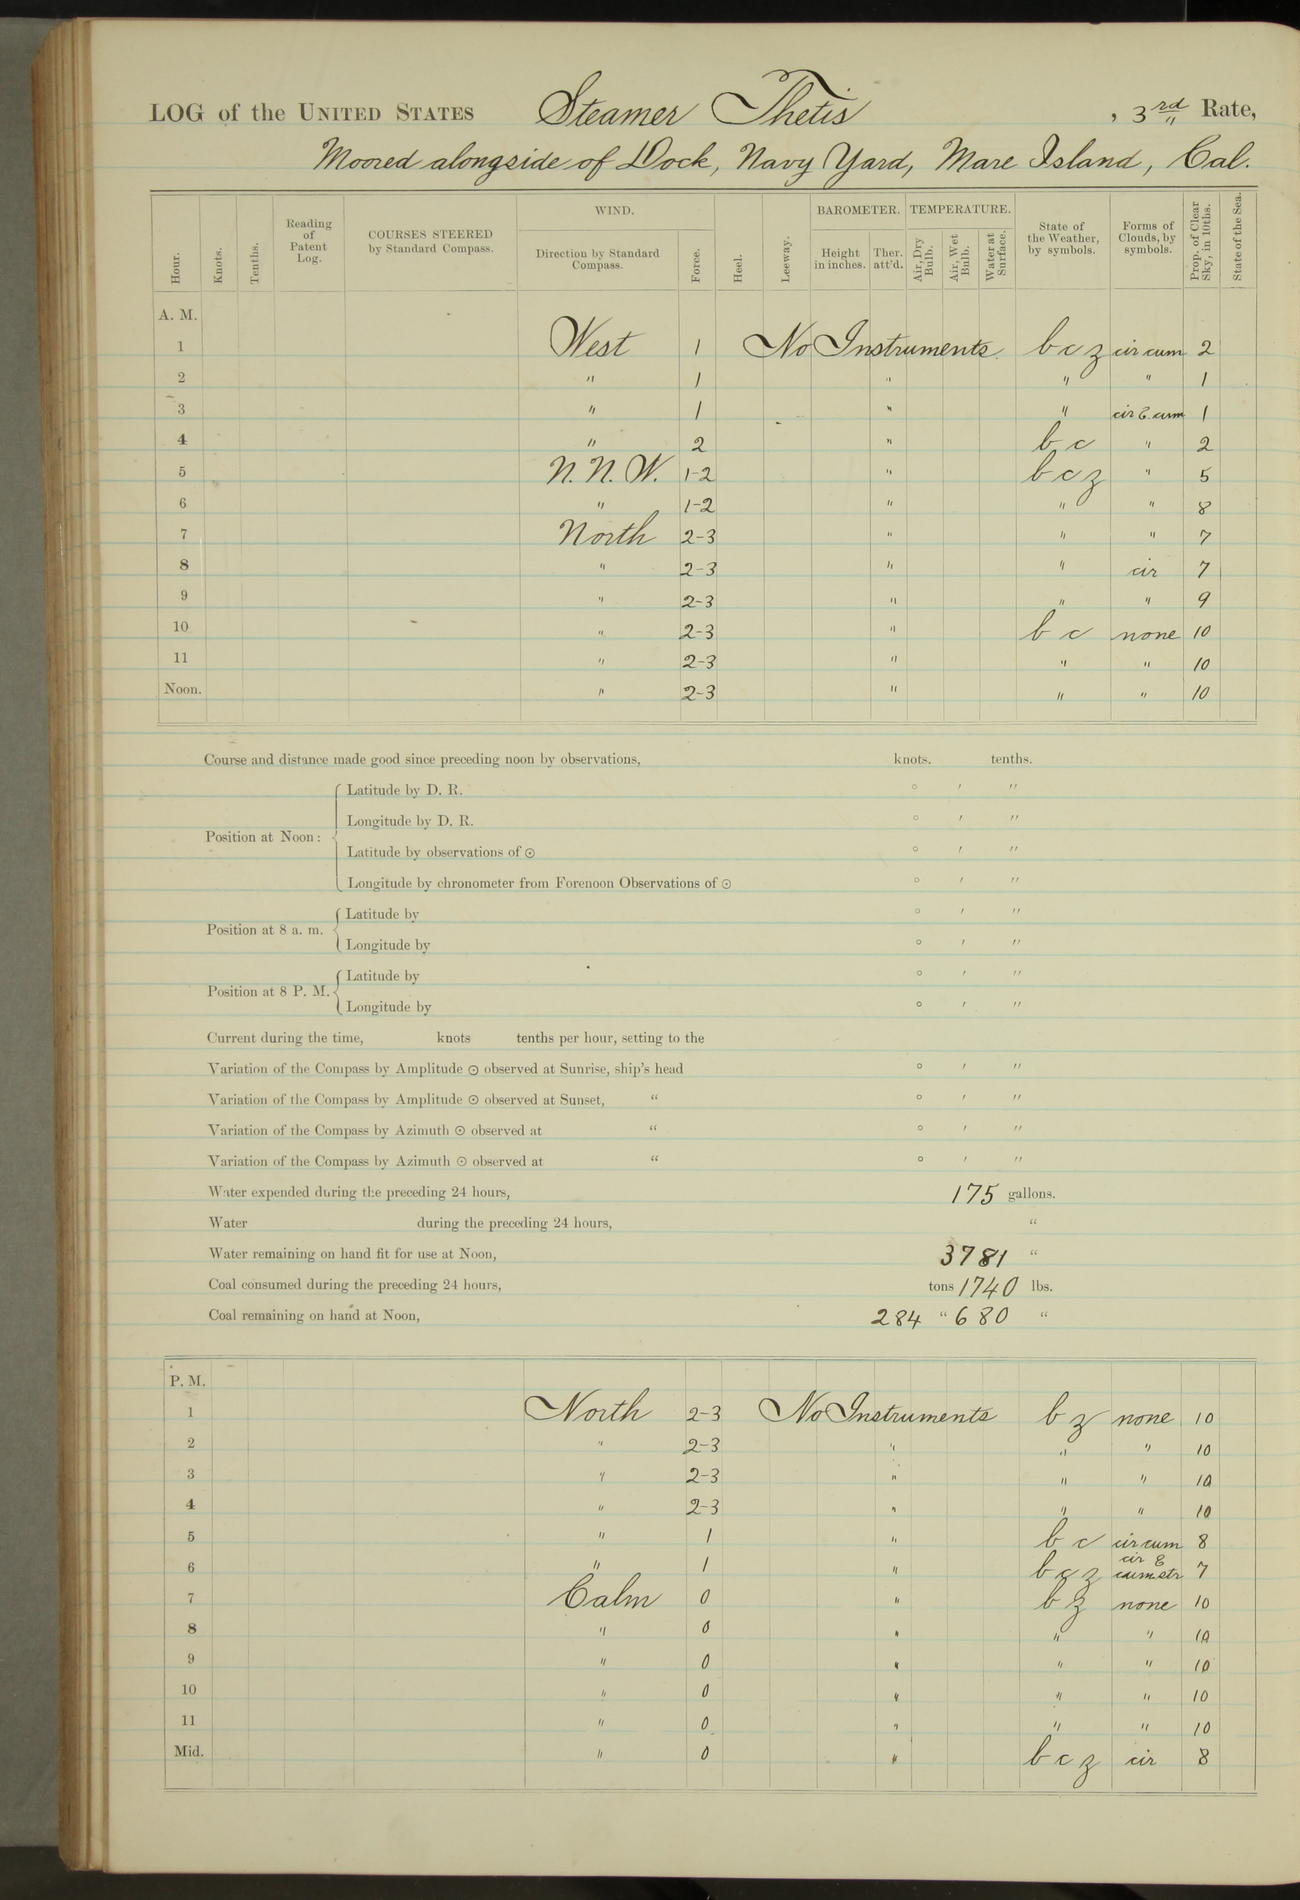 LOG of the UNITED STATES Steamer Thetis , 3rd Rate,
Moored alongside of Dock, Navy Yard, Mare Island, Cal.
Hour. Knots. Tenths. Reading of Patent Log. COURSES STEERED by Standard Compass. WIND. Direction by Standard Compass. Force. Heel. Leeway. BAROMETER. Height in inches. Ther. att'd. TEMPERATURE. Air, Dry Bulb. Air, Wet Bulb. Water at Surface. State of the Weather, by symbols. Forms of Clouds, by symbols. Prop. of Clear Sky, in 10ths. State of the Sea.
A. M.
1 West 1 No Instruments b c z cir cum 2
2 " 1 " " " 1
3 " 1 " " cir & cum 1
4 " 2 " b c " 2
5 N. N. W. 1-2 " b c z " 5
6 " 1-2 " " " 8
7 North 2-3 " " " 7
8 " 2-3 " " cir 7
9 " 2-3 " " " 9
10 " 2-3 " b c none 10
11 " 2-3 " " " 10
Noon. " 2-3 " " " 10
Course and distance made good since preceding noon by observations, knots. tenths.
Position at Noon:
Latitude by D. R. ° ′ ″
Longitude by D. R. ° ′ ″
Latitude by observations of ☉ ° ′ ″
Longitude by chronometer from Forenoon Observations of ☉ ° ′ ″
Position at 8 a. m.
Latitude by ° ′ ″
Longitude by ° ′ ″
Position at 8 P. M.
Latitude by ° ′ ″
Longitude by ° ′ ″
Current during the time, knots tenths per hour, setting to the
Variation of the Compass by Amplitude ☉ observed at Sunrise, ship's head ° ′ ″
Variation of the Compass by Amplitude ☉ observed at Sunset, “ ° ′ ″
Variation of the Compass by Azimuth ☉ observed at “ ° ′ ″
Variation of the Compass by Azimuth ☉ observed at “ ° ′ ″
Water expended during the preceding 24 hours, 175 gallons.
Water during the preceding 24 hours, “
Water remaining on hand fit for use at Noon, 3781 “
Coal consumed during the preceding 24 hours, tons 1740 lbs.
Coal remaining on hand at Noon, 284 “ 680 “
P. M.
1 North 2-3 No Instruments b z none 10
2 " 2-3 " " " 10
3 " 2-3 " " " 10
4 " 2-3 " " " 10
5 " 1 " b c cir cum 8
6 " 1 " b c z cir & cum str 7
7 Calm 0 " b z none 10
8 " 0 " " " 10
9 " 0 " " " 10
10 " 0 " " " 10
11 " 0 " " " 10
Mid. " 0 " b c z cir 8